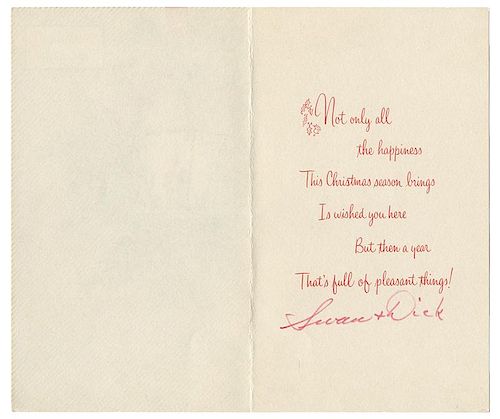 Not only all
the happiness
This Christmas season brings
Is wished you here
But then a year
That's full of pleasant things!
Swan + Dick